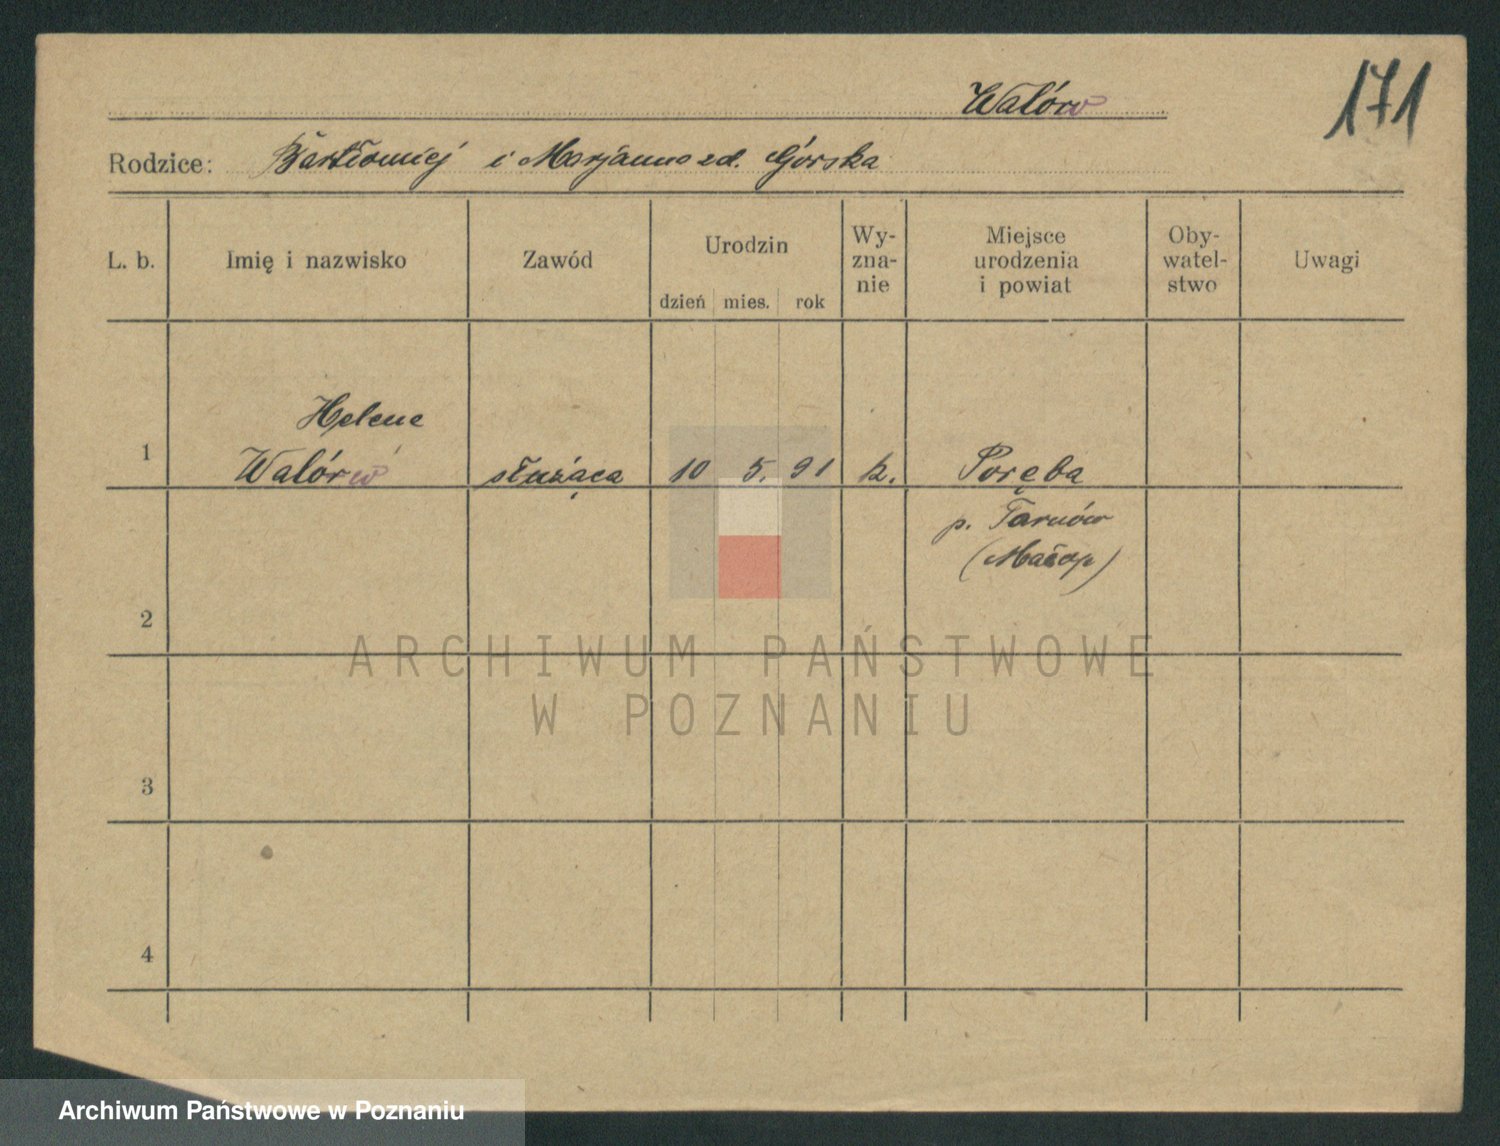 171
Walórw
Rodzice: Bartłomiej i Marjanna zd. Górska
L. b.
Imię i nazwisko
Zawód
Urodzin
dzień mies. rok
Wy-
zna-
nie
Miejsce
urodzenia
i powiat
Oby-
watel-
stwo
Uwagi
Helene
1 Walórw służąca 10 5. 91 k. Poręba
p. Tarnów
(Małop)
2
3
4
ARCHIWUM PAŃSTWOWE
W POZNANIU
Archiwum Państwowe w Poznaniu